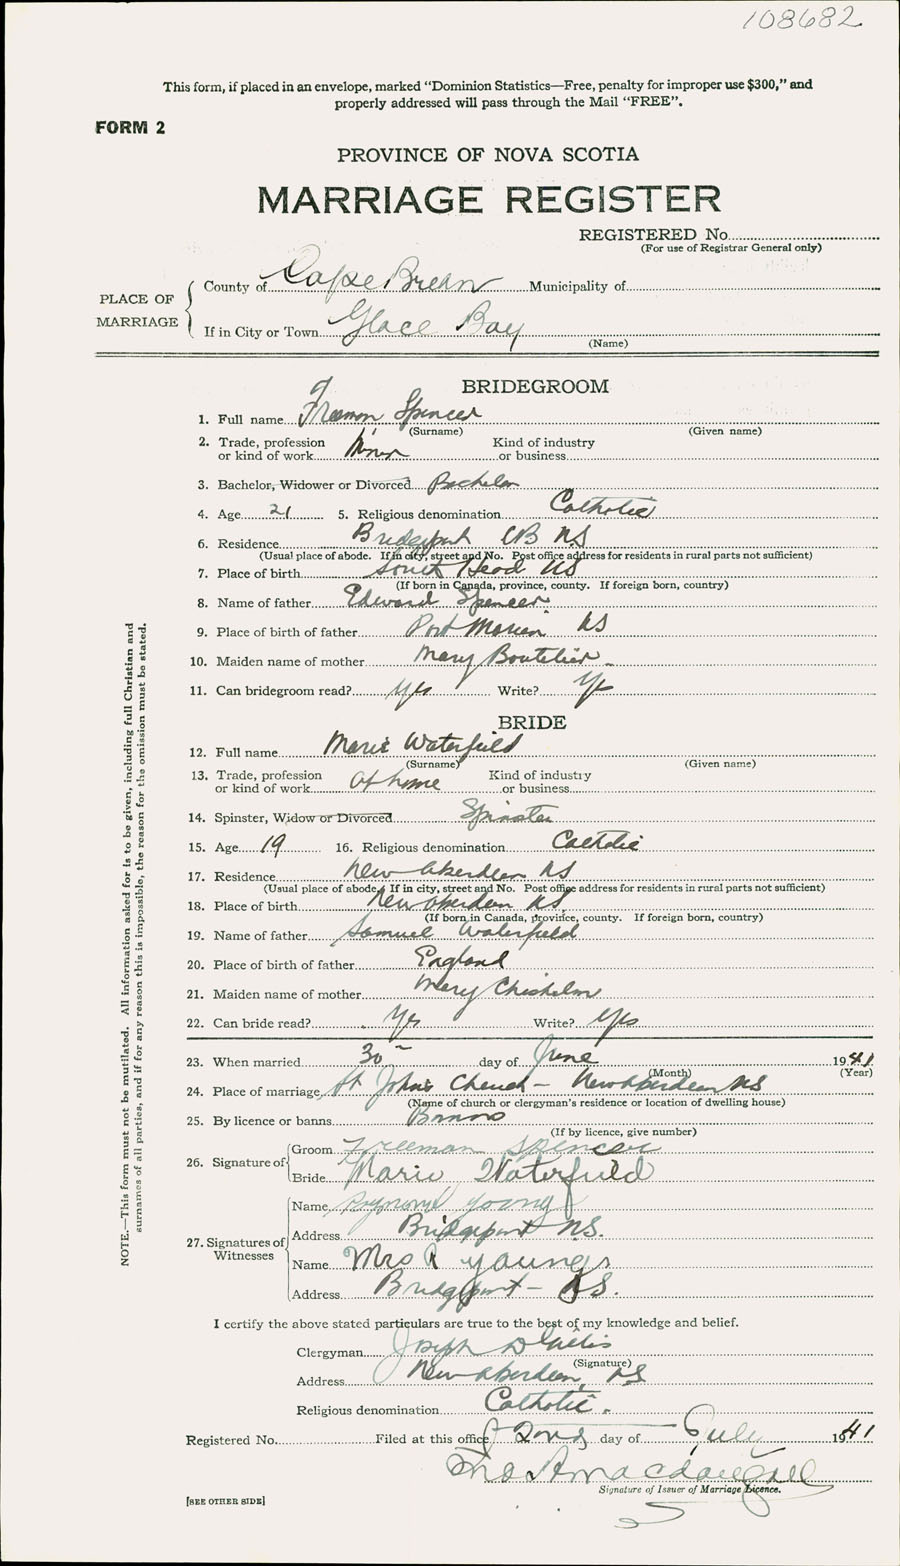 108682
This form, if placed in an envelope, marked “Dominion Statistics—Free, penalty for improper use $300,” and
properly addressed will pass through the Mail “FREE”.
FORM 2
PROVINCE OF NOVA SCOTIA
MARRIAGE REGISTER
REGISTERED No.
(For use of Registrar General only)
PLACE OF MARRIAGE
County of Cape Breton Municipality of
If in City or Town Glace Bay
(Name)
BRIDEGROOM
1. Full name Freeman Spencer
(Surname) (Given name)
2. Trade, profession Kind of industry
or kind of work Miner or business
3. Bachelor, Widower or Divorced Bachelor
4. Age 21 5. Religious denomination Catholic
6. Residence Bridgeport CB NS
(Usual place of abode. If in city, street and No. Post office address for residents in rural parts not sufficient)
7. Place of birth South Head NS
(If born in Canada, province, county. If foreign born, country)
8. Name of father Edward Spencer
9. Place of birth of father Port Morien NS
10. Maiden name of mother Mary Boutelier
11. Can bridegroom read? yes Write? Yes
BRIDE
12. Full name Marie Waterfield
(Surname) (Given name)
13. Trade, profession Kind of industry
or kind of work At home or business
14. Spinster, Widow or Divorced Spinster
15. Age 19 16. Religious denomination Catholic
17. Residence New Aberdeen NS
(Usual place of abode. If in city, street and No. Post office address for residents in rural parts not sufficient)
18. Place of birth New Aberdeen NS
(If born in Canada, province, county. If foreign born, country)
19. Name of father Samuel Waterfield
20. Place of birth of father England
21. Maiden name of mother Mary Chisholm
22. Can bride read? Yes Write? Yes
23. When married 30 day of June 1941
(Month) (Year)
24. Place of marriage St John's Church - New Aberdeen NS
(Name of church or clergyman's residence or location of dwelling house)
25. By licence or banns Banns
(If by licence, give number)
26. Signature of Groom Freeman Spencer
Bride Marie Waterfield
27. Signatures of Witnesses
Name Raymond Young
Address Bridgeport N.S.
Name Mrs R Young
Address Bridgeport - N.S.
I certify the above stated particulars are true to the best of my knowledge and belief.
Clergyman Joseph D Gillis
(Signature)
Address New Aberdeen, NS
Religious denomination Catholic.
Registered No. Filed at this office 2nd day of July 1941
Macdougall
Signature of Issuer of Marriage Licence.
[SEE OTHER SIDE]
NOTE.—This form must not be mutilated. All information asked for is to be given, including full Christian and
surnames of all parties, and if for any reason this is impossible, the reason for the omission must be stated.